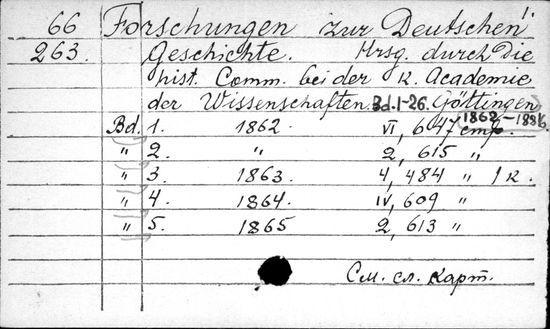 66 Forschungen zur Deutschen
263. Geschichte. Hrsg. durch Die
hist. Comm. bei der K. Academie
der Wissenschaften. Bd. 1-26. Göttingen
1862-1886.
Bd. 1. 1862. VI, 647 cmp.
" 2. " 2, 615 "
" 3. 1863. 4, 484 " 1 K.
" 4. 1864. IV, 609 "
" 5. 1865 2, 613 "
См. сл. карт.